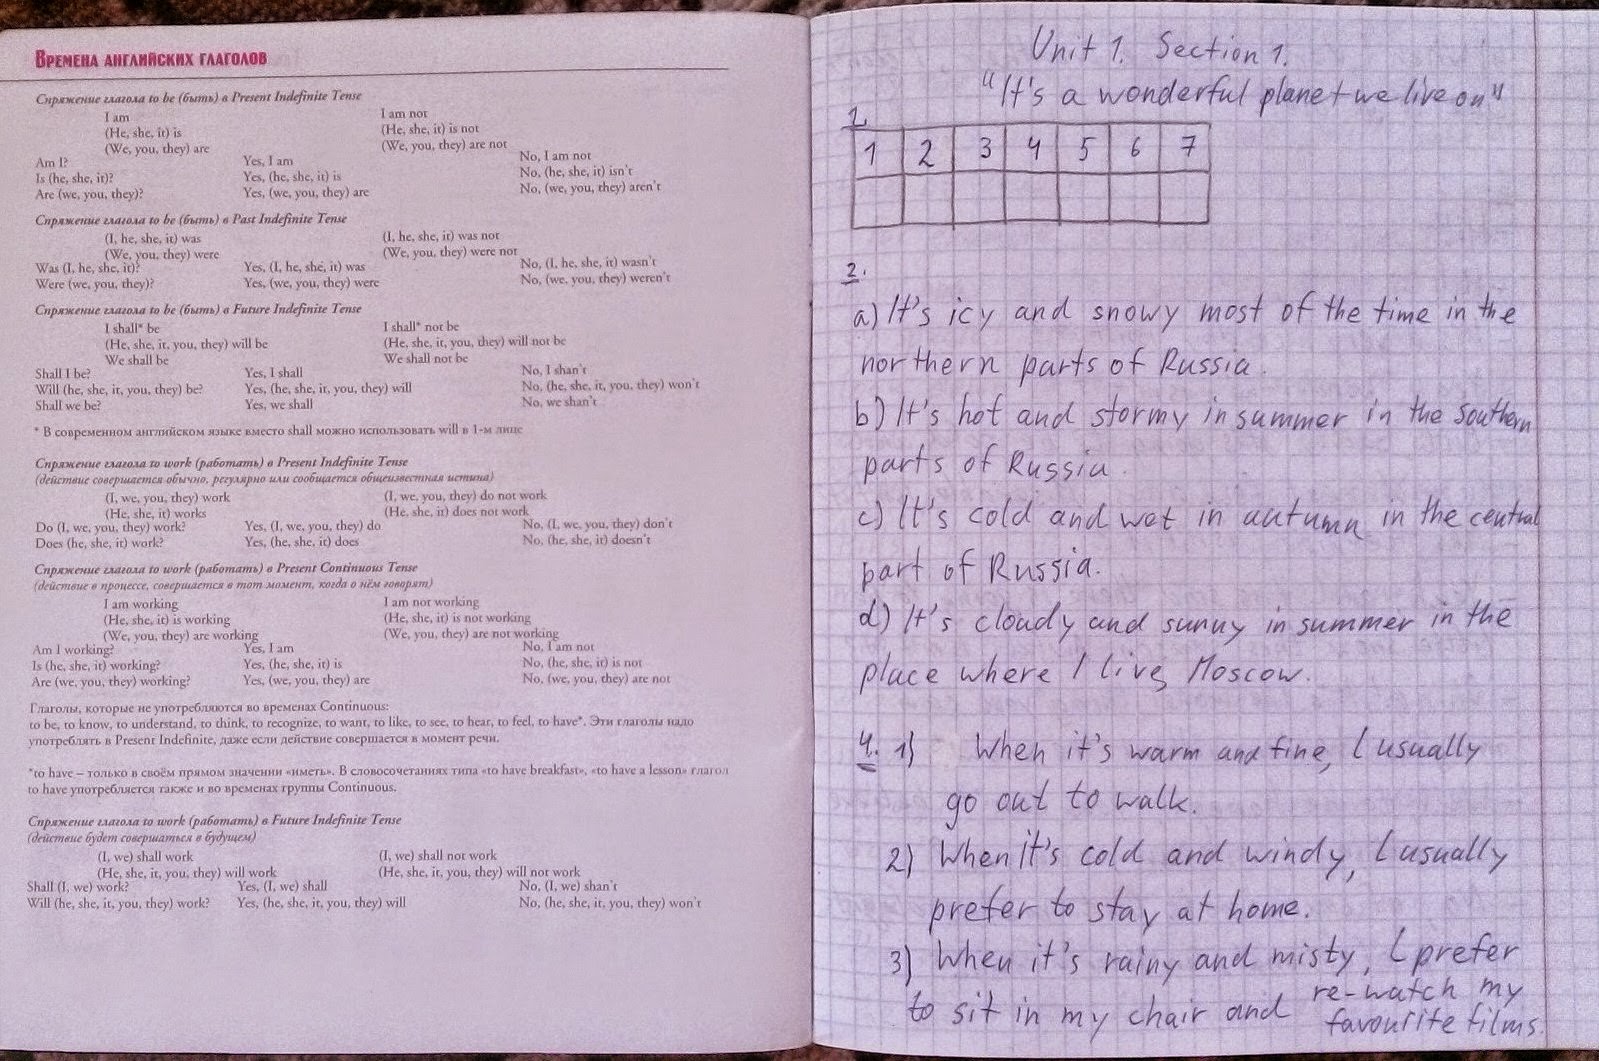 ВРЕМЕНА АНГЛИЙСКИХ ГЛАГОЛОВ
Спряжение глагола to be (быть) в Present Indefinite Tense
I am I am not
(He, she, it) is (He, she, it) is not
(We, you, they) are (We, you, they) are not
Am I? Yes, I am No, I am not
Is (he, she, it)? Yes, (he, she, it) is No, (he, she, it) isn't
Are (we, you, they)? Yes, (we, you, they) are No, (we, you, they) aren't
Спряжение глагола to be (быть) в Past Indefinite Tense
(I, he, she, it) was (I, he, she, it) was not
(We, you, they) were (We, you, they) were not
Was (I, he, she, it)? Yes, (I, he, she, it) was No, (I, he, she, it) wasn't
Were (we, you, they)? Yes, (we, you, they) were No, (we, you, they) weren't
Спряжение глагола to be (быть) в Future Indefinite Tense
I shall* be I shall* not be
(He, she, it, you, they) will be (He, she, it, you, they) will not be
We shall be We shall not be
Shall I be? Yes, I shall No, I shan't
Will (he, she, it, you, they) be? Yes, (he, she, it, you, they) will No, (he, she, it, you, they) won't
Shall we be? Yes, we shall No, we shan't
* В современном английском языке вместо shall можно использовать will в 1-м лице
Спряжение глагола to work (работать) в Present Indefinite Tense
(действие совершается обычно, регулярно или сообщается общеизвестная истина)
(I, we, you, they) work (I, we, you, they) do not work
(He, she, it) works (He, she, it) does not work
Do (I, we, you, they) work? Yes, (I, we, you, they) do No, (I, we, you, they) don't
Does (he, she, it) work? Yes, (he, she, it) does No, (he, she, it) doesn't
Спряжение глагола to work (работать) в Present Continuous Tense
(действие в процессе, совершается в тот момент, когда о нём говорят)
I am working I am not working
(He, she, it) is working (He, she, it) is not working
(We, you, they) are working (We, you, they) are not working
Am I working? Yes, I am No, I am not
Is (he, she, it) working? Yes, (he, she, it) is No, (he, she, it) is not
Are (we, you, they) working? Yes, (we, you, they) are No, (we, you, they) are not
Глаголы, которые не употребляются во временах Continuous:
to be, to know, to understand, to think, to recognize, to want, to like, to see, to hear, to feel, to have*. Эти глаголы надо
употреблять в Present Indefinite, даже если действие совершается в момент речи.
*to have – только в своём прямом значении «иметь». В словосочетаниях типа «to have breakfast», «to have a lesson» глагол
to have употребляется также и во временах группы Continuous.
Спряжение глагола to work (работать) в Future Indefinite Tense
(действие будет совершаться в будущем)
(I, we) shall work (I, we) shall not work
(He, she, it, you, they) will work (He, she, it, you, they) will not work
Shall (I, we) work? Yes, (I, we) shall No, (I, we) shan't
Will (he, she, it, you, they) work? Yes, (he, she, it, you, they) will No, (he, she, it, you, they) won't
Unit 1. Section 1.
"It's a wonderful planet we live on"
1.
1 2 3 4 5 6 7
2.
a) It's icy and snowy most of the time in the
northern parts of Russia.
b) It's hot and stormy in summer in the southern
parts of Russia.
c) It's cold and wet in autumn in the central
part of Russia.
d) It's cloudy and sunny in summer in the
place where I live, Moscow.
4. 1) When it's warm and fine, I usually
go out to walk.
2) When it's cold and windy, I usually
prefer to stay at home.
3) When it's rainy and misty, I prefer
to sit in my chair and re-watch my
favourite films.